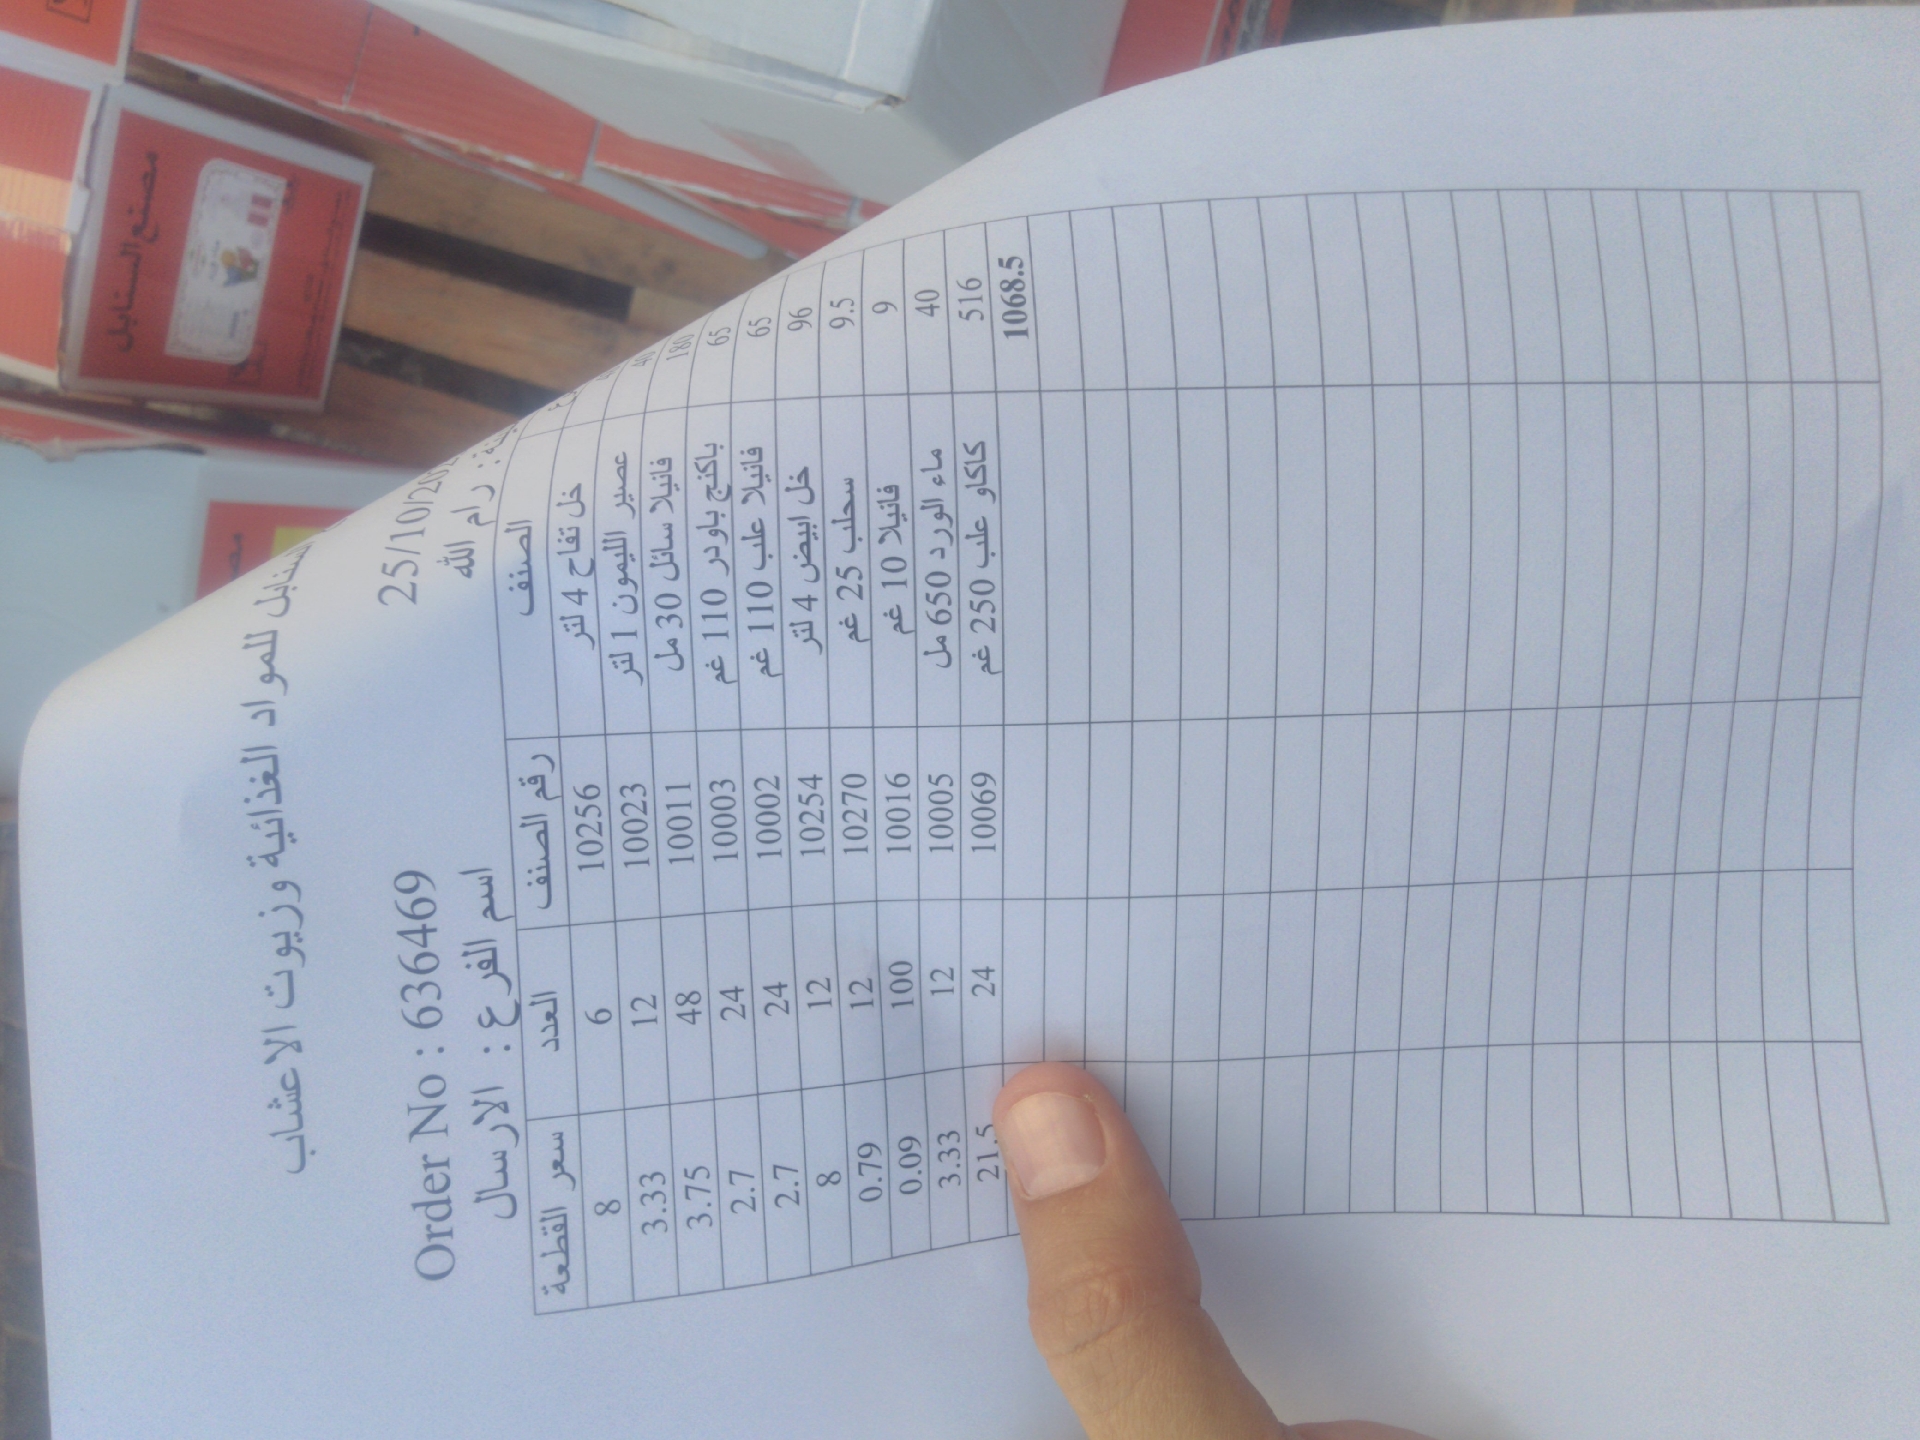 السنابل للمواد الغذائية وزيوت الاعشاب
Order No : 636469 25/10/202
اسم الفرع : الارسال رام الله
سعر القطعة العدد رقم الصنف الصنف
8 6 10256 خل تفاح 4 لتر
3.33 12 10023 عصير الليمون 1 لتر 40
3.75 48 10011 فانيلا سائل 30 مل 180
2.7 24 10003 باكنج باودر 110 غم 65
2.7 24 10002 فانيلا علب 110 غم 65
8 12 10254 خل ابيض 4 لتر 96
0.79 12 10270 سحلب 25 غم 9.5
0.09 100 10016 فانيلا 10 غم 9
3.33 12 10005 ماء الورد 650 مل 40
21.5 24 10069 كاكاو علب 250 غم 516
1068.5
مصنع السنابل